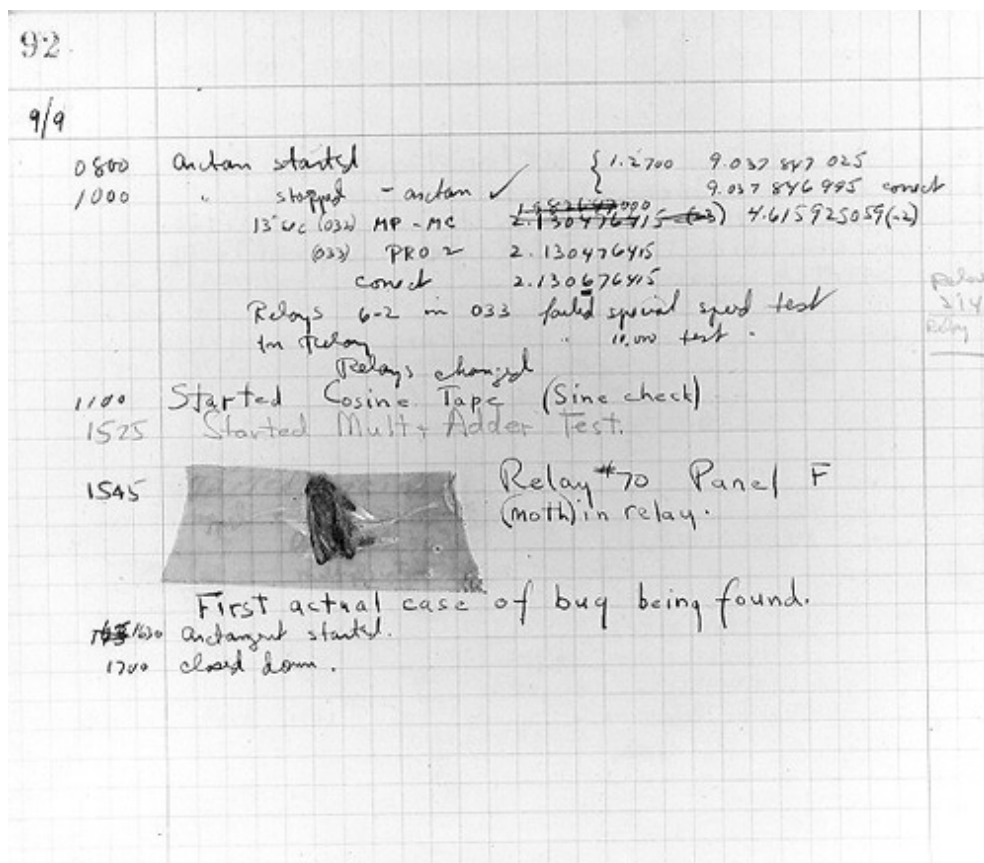 92
9/9
0800 arctan started { 1.2700 9.037 847 025
1000 " stopped - arctan ✓ 9.037 846 995 correct
13"uc (032) MP - MC 2.130476415 (-3) 4.615925059(-2)
(033) PRO 2 2.130476415
correct 2.130676415
Relays 6-2 in 033 failed special speed test
In Relay " 10.000 test .
Relays changed
Relay
Relay
1100 Started Cosine Tape (Sine check)
1525 Started Mult + Adder Test.
1545 Relay #70 Panel F
(moth) in relay.
First actual case of bug being found.
1630 arctangent started.
1700 closed down .